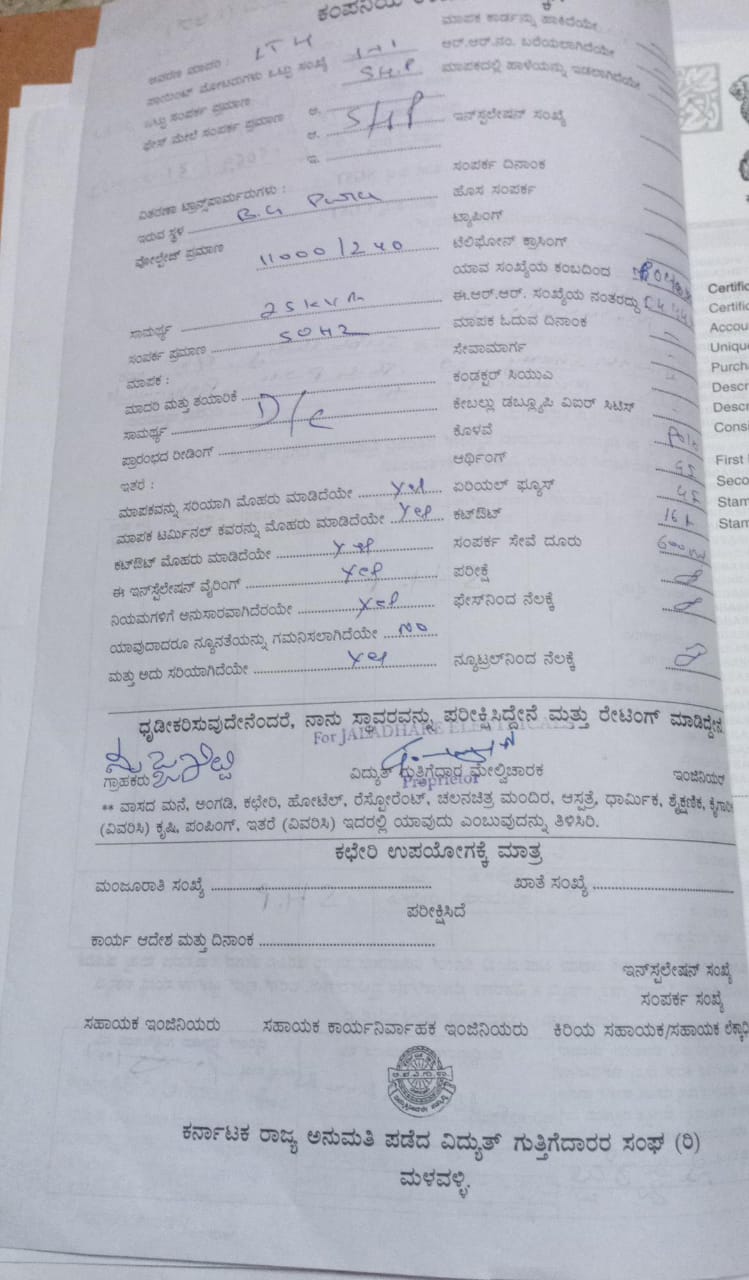 ಕಂಪನಿಯ
ಮಾಪಕ ಕಾರ್ಡನ್ನು ಹಾಕಿದೆಯೇ
ಆವರಣ ಮಾಪನ : LTH
ಆರ್.ಆರ್.ನಂ. ಬರೆಯಲಾಗಿದೆಯೇ
ಪಾಯಿಂಟ್ ಮೋಟರುಗಳು ಒಟ್ಟು ಸಂಖ್ಯೆ 1+1
ಮಾಪಕದಲ್ಲಿ ಹಾಳೆಯನ್ನು ಇಡಲಾಗಿದೆಯೇ
ಒಟ್ಟು ಸಂಪರ್ಕ ಪ್ರಮಾಣ 5H.P
ಫೇಸ್ ಮೇಲೆ ಸಂಪರ್ಕ ಪ್ರಮಾಣ ಅ.
ಆ. 5HP ಇನ್‌ಸ್ಟಲೇಷನ್ ಸಂಖ್ಯೆ
ಇ.
ಸಂಪರ್ಕ ದಿನಾಂಕ
ವಿತರಣಾ ಟ್ರಾನ್ಸ್‌ಫಾರ್ಮರುಗಳು :
ಹೊಸ ಸಂಪರ್ಕ
ಇರುವ ಸ್ಥಳ B.G Pura
ಟ್ಯಾಪಿಂಗ್
ವೋಲ್ಟೇಜ್ ಪ್ರಮಾಣ 11000/240 ಟೆಲಿಫೋನ್ ಕ್ರಾಸಿಂಗ್
ಯಾವ ಸಂಖ್ಯೆಯ ಕಂಬದಿಂದ
ಸಾಮರ್ಥ್ಯ 25kVA ಈ.ಆರ್.ಆರ್. ಸಂಖ್ಯೆಯ ನಂತರದ್ದು
ಸಂಪರ್ಕ ಪ್ರಮಾಣ 50HZ ಮಾಪಕ ಓದುವ ದಿನಾಂಕ
ಮಾಪಕ : ಸೇವಾಮಾರ್ಗ
ಮಾದರಿ ಮತ್ತು ತಯಾರಿಕೆ ಕಂಡಕ್ಟರ್ ಸಿಯುಎ
ಸಾಮರ್ಥ್ಯ D/C ಕೇಬಲ್ಲು ಡಬ್ಲ್ಯೂಪಿ ವಿಐಆರ್ ಸಿಟಿಸ್
ಪ್ರಾರಂಭದ ರೀಡಿಂಗ್ ಕೊಳವೆ Pole
ಇತರೆ : ಆರ್ಥಿಂಗ್ GS
ಮಾಪಕವನ್ನು ಸರಿಯಾಗಿ ಮೊಹರು ಮಾಡಿದೆಯೇ Yes ಏರಿಯಲ್ ಫ್ಯೂಸ್
ಮಾಪಕ ಟರ್ಮಿನಲ್ ಕವರನ್ನು ಮೊಹರು ಮಾಡಿದೆಯೇ Yes ಕಟ್‌ಔಟ್ 16A
ಕಟ್‌ಔಟ್ ಮೊಹರು ಮಾಡಿದೆಯೇ Yes ಸಂಪರ್ಕ ಸೇವೆ ದೂರು
ಈ ಇನ್‌ಸ್ಟೆಲೇಷನ್ ವೈರಿಂಗ್ Yes ಪರೀಕ್ಷೆ
ನಿಯಮಗಳಿಗೆ ಅನುಸಾರವಾಗಿದೆರಯೇ Yes ಫೇಸ್‌ನಿಂದ ನೆಲಕ್ಕೆ
ಯಾವುದಾದರೂ ನ್ಯೂನತೆಯನ್ನು ಗಮನಿಸಲಾಗಿದೆಯೇ NO
ಮತ್ತು ಅದು ಸರಿಯಾಗಿದೆಯೇ Yes ನ್ಯೂಟ್ರಲ್‌ನಿಂದ ನೆಲಕ್ಕೆ
ಧೃಡೀಕರಿಸುವುದೇನೆಂದರೆ, ನಾನು ಸ್ಥಾವರವನ್ನು ಪರೀಕ್ಷಿಸಿದ್ದೇನೆ ಮತ್ತು ರೇಟಿಂಗ್ ಮಾಡಿದ್ದೇನೆ
For JALADHARE ELECTRICALS
ಗ್ರಾಹಕರು ವಿದ್ಯುತ್ ಗುತ್ತಿಗೆದಾರ ಮೇಲ್ವಿಚಾರಕ ಇಂಜಿನಿಯರ್
Proprietor
** ವಾಸದ ಮನೆ, ಅಂಗಡಿ, ಕಛೇರಿ, ಹೋಟೆಲ್, ರೆಸ್ಟೋರೆಂಟ್, ಚಲನಚಿತ್ರ ಮಂದಿರ, ಆಸ್ಪತ್ರೆ, ಧಾರ್ಮಿಕ, ಶೈಕ್ಷಣಿಕ, ಕೈಗಾರಿ
(ವಿವರಿಸಿ) ಕೃಷಿ, ಪಂಪಿಂಗ್, ಇತರೆ (ವಿವರಿಸಿ) ಇದರಲ್ಲಿ ಯಾವುದು ಎಂಬುವುದನ್ನು ತಿಳಿಸಿರಿ.
ಕಛೇರಿ ಉಪಯೋಗಕ್ಕೆ ಮಾತ್ರ
ಮಂಜೂರಾತಿ ಸಂಖ್ಯೆ ಖಾತೆ ಸಂಖ್ಯೆ
ಪರೀಕ್ಷಿಸಿದೆ
ಕಾರ್ಯ ಆದೇಶ ಮತ್ತು ದಿನಾಂಕ
ಇನ್‌ಸ್ಟಲೇಷನ್ ಸಂಖ್ಯೆ
ಸಂಪರ್ಕ ಸಂಖ್ಯೆ
ಸಹಾಯಕ ಇಂಜಿನಿಯರು ಸಹಾಯಕ ಕಾರ್ಯನಿರ್ವಾಹಕ ಇಂಜಿನಿಯರು ಕಿರಿಯ ಸಹಾಯಕ/ಸಹಾಯಕ ಲೆಕ್ಕಾಧಿ
ಕರ್ನಾಟಕ ರಾಜ್ಯ ಅನುಮತಿ ಪಡೆದ ವಿದ್ಯುತ್ ಗುತ್ತಿಗೆದಾರರ ಸಂಘ (ರಿ)
ಮಳವಳ್ಳಿ.
Certific
Certific
Accou
Unique
Purch
Descr
Descr
Consi
First
Seco
Stam
Stam